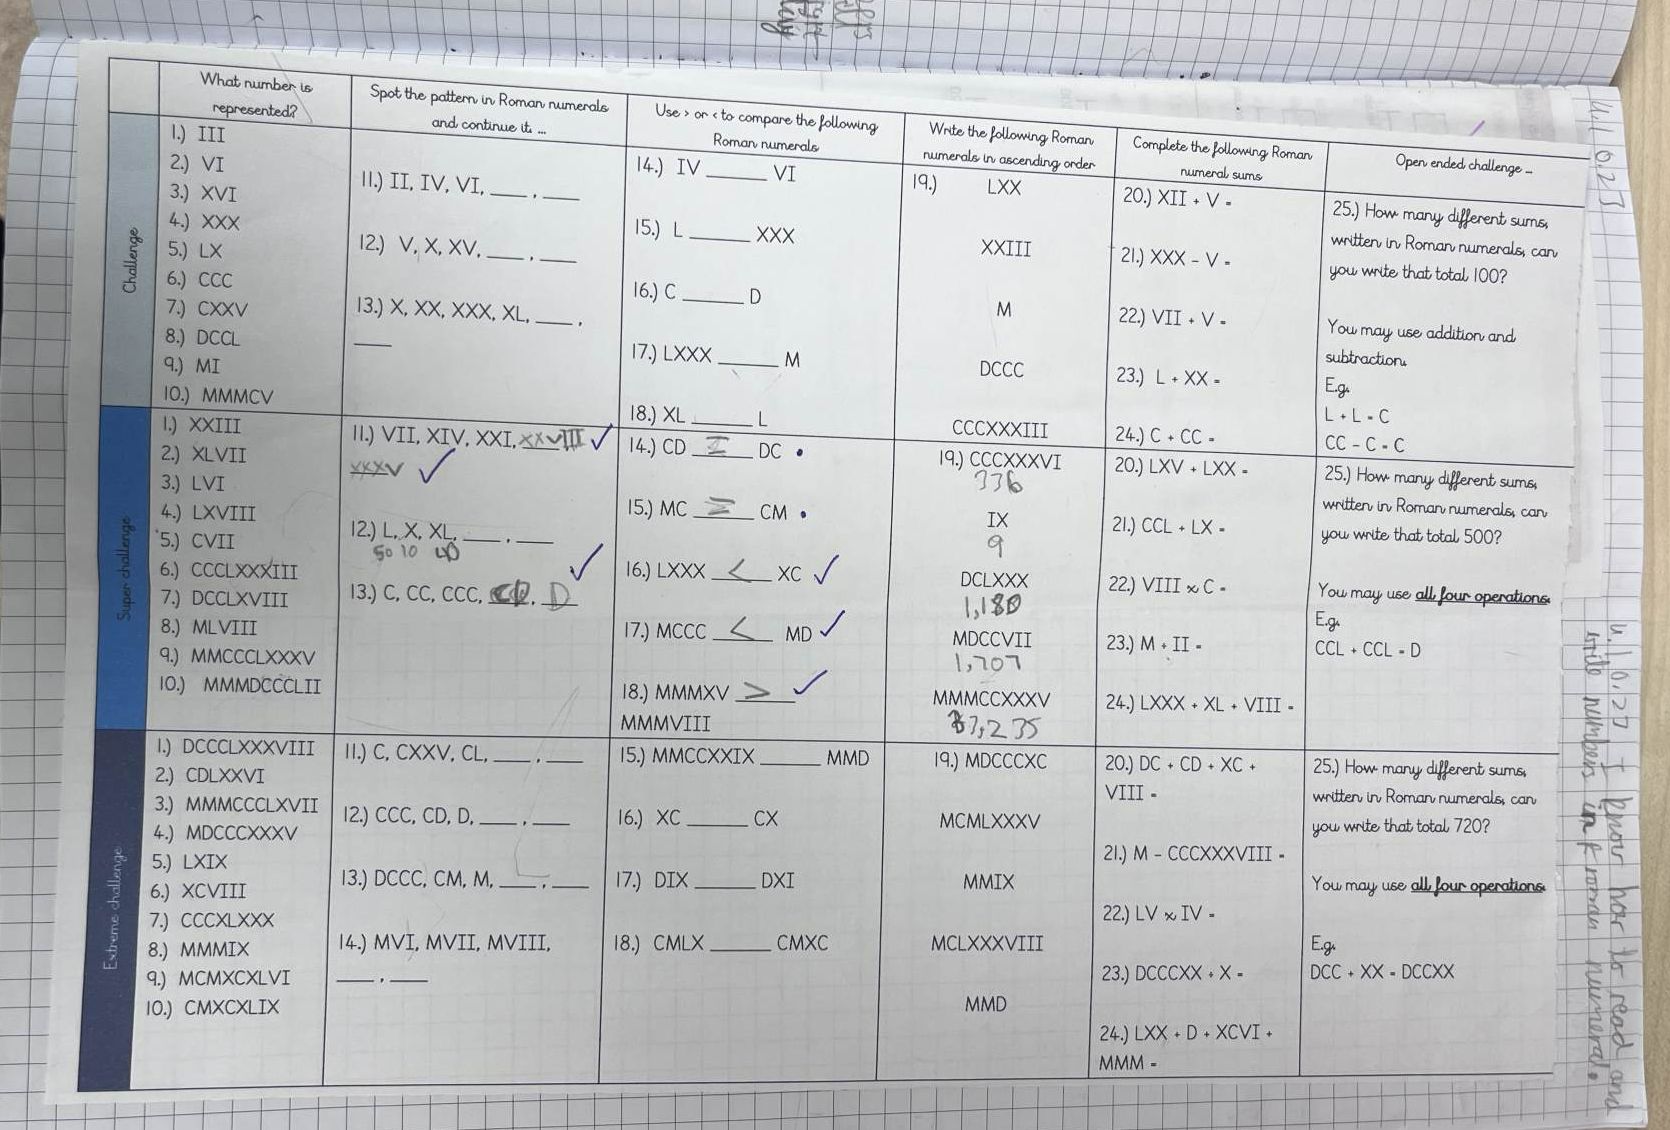 What number is
represented?
Spot the pattern in Roman numerals
and continue it ...
Use > or < to compare the following
Roman numerals
Write the following Roman
numerals in ascending order
Complete the following Roman
numeral sums
Open ended challenge -
Challenge
1.) III
2.) VI
3.) XVI
4.) XXX
5.) LX
6.) CCC
7.) CXXV
8.) DCCL
9.) MI
10.) MMMCV
11.) II, IV, VI, ____ , ____
12.) V, X, XV, ____ , ____
13.) X, XX, XXX, XL, ____ ,
____
14.) IV ______ VI
15.) L ______ XXX
16.) C ______ D
17.) LXXX ______ M
18.) XL ______ L
19.) LXX
XXIII
M
DCCC
CCCXXXIII
20.) XII + V =
21.) XXX - V =
22.) VII + V =
23.) L + XX =
24.) C + CC =
25.) How many different sums,
written in Roman numerals, can
you write that total 100?
You may use addition and
subtraction.
E.g.
L + L = C
CC - C = C
Super challenge
1.) XXIII
2.) XLVII
3.) LVI
4.) LXVIII
5.) CVII
6.) CCCLXXXIII
7.) DCCLXVIII
8.) MLVIII
9.) MMCCCLXXXV
10.) MMMDCCCLII
11.) VII, XIV, XXI, XXVIII ✓
XXXV ✓
12.) L, X, XL, ____ , ____
50 10 40
13.) C, CC, CCC, CD, D ✓
14.) CD DC •
15.) MC CM •
16.) LXXX < XC ✓
17.) MCCC < MD ✓
18.) MMMXV > ✓
MMMVIII
19.) CCCXXXVI
336
IX
9
DCLXXX
1,180
MDCCVII
1,707
MMMCCXXXV
3,235
20.) LXV + LXX =
21.) CCL + LX =
22.) VIII x C =
23.) M + II =
24.) LXXX + XL + VIII =
25.) How many different sums,
written in Roman numerals, can
you write that total 500?
You may use all four operations.
E.g.
CCL + CCL = D
Extreme challenge
1.) DCCCLXXXVIII
2.) CDLXXVI
3.) MMMCCCLXVII
4.) MDCCCXXXV
5.) LXIX
6.) XCVIII
7.) CCCXLXXX
8.) MMMIX
9.) MCMXCXLVI
10.) CMXCXLIX
11.) C, CXXV, CL, ____ , ____
12.) CCC, CD, D, ____ , ____
13.) DCCC, CM, M, ____ , ____
14.) MVI, MVII, MVIII,
____ , ____
15.) MMCCXXIX ______ MMD
16.) XC ______ CX
17.) DIX ______ DXI
18.) CMLX ______ CMXC
19.) MDCCCXC
MCMLXXXV
MMIX
MCLXXXVIII
MMD
20.) DC + CD + XC +
VIII =
21.) M - CCCXXXVIII =
22.) LV x IV =
23.) DCCCXX + X =
24.) LXX + D + XCVI +
MMM =
25.) How many different sums,
written in Roman numerals, can
you write that total 720?
You may use all four operations.
E.g.
DCC + XX = DCCXX
I know how to read and
write numbers in roman numeral.